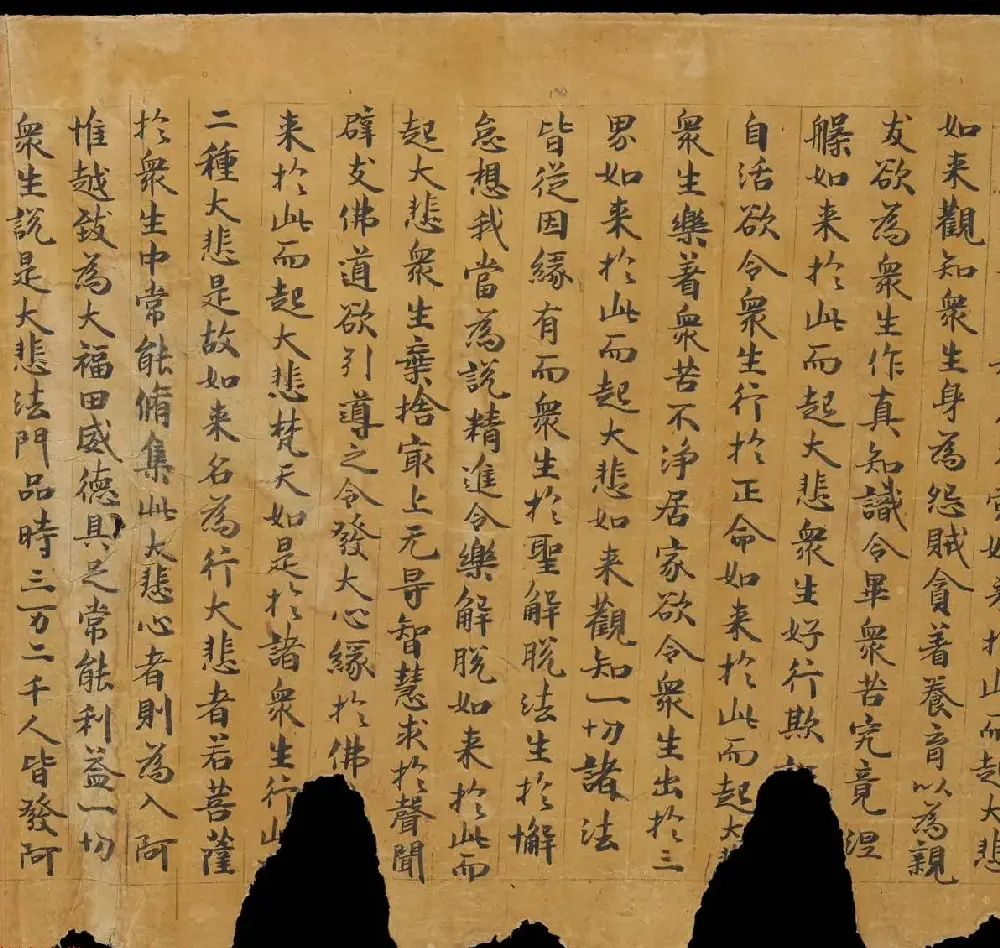 於此而起大悲
如来觀知衆生身為怨賊貪著養育以為親
友欲為衆生作真知識令畢衆苦究竟涅
槃如来於此而起大悲衆生好行欺
自活欲令衆生行於正命如来於此而起大
衆生樂着衆苦不淨居家欲令衆生出於三
界如来於此而起大悲如来觀知一切諸法
皆従因緣有而衆生於聖解脫法生於懈
怠想我當為說精進令樂解脫如来於此而
起大悲衆生棄捨㝡上无㝵智慧求於聲聞
辟支佛道欲引導之令發大心緣於佛
来於此而起大悲梵天如是於諸衆生行
二種大悲是故如来名為行大悲者若菩薩
於衆生中常能脩集此大悲心者則為入阿
惟越致為大福田威德具足常能利益一切
衆生說是大悲法門品時三万二千人皆發阿